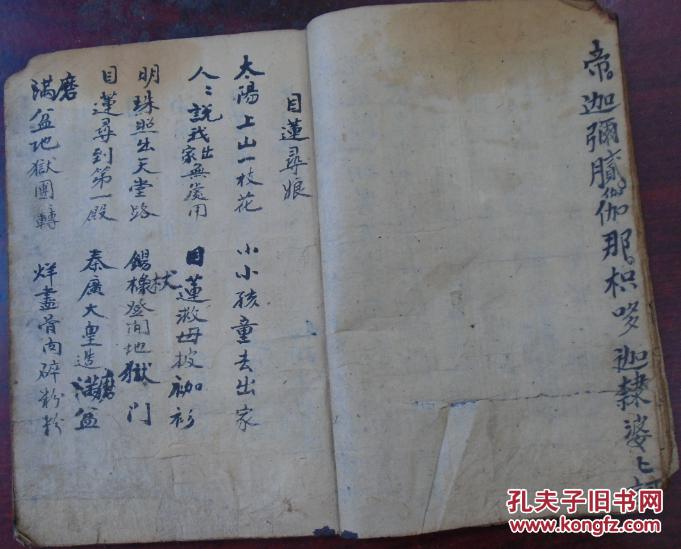 帝迦彌膩伽伽那枳哆迦隸婆〻訶
目蓮尋娘
太陽上山一枝花 小小孩童去出家
人〻說我出家無處用 目蓮救母披袈衫
明珠照出天堂路 錫杖橡登開地獄门
目蓮尋到第一殿 秦廣大皇造磨滿盆
磨滿盆地獄團轉 烊盡骨肉碎粉粉
孔夫子旧书网
www.kongfz.com